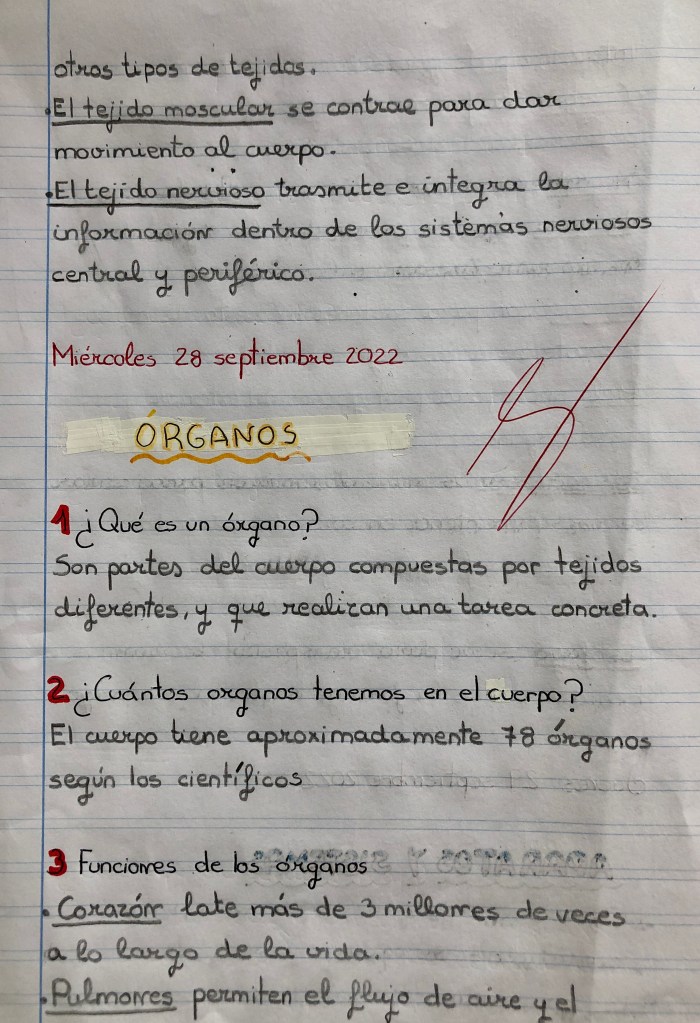 otros tipos de tejidos.
• El tejido moscular se contrae para dar
movimiento al cuerpo.
• El tejido nervioso trasmite e integra la
información dentro de los sistemas nerviosos
central y periférico.
Miércoles 28 septiembre 2022
ÓRGANOS
1 ¿Qué es un órgano?
Son partes del cuerpo compuestas por tejidos
diferentes, y que realizan una tarea concreta.
2 ¿Cuántos organos tenemos en el cuerpo?
El cuerpo tiene aproximadamente 78 órganos
según los científicos
3 Funciones de los órganos
• Corazón late más de 3 millones de veces
a lo largo de la vida.
• Pulmones permiten el flujo de aire y el